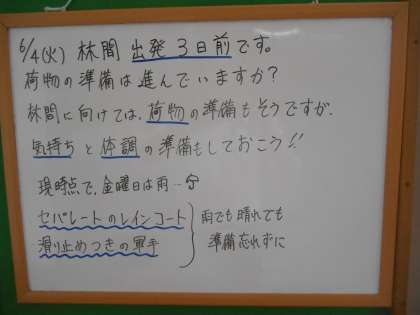 6/4(火) 林間 出発3日前です。
荷物の準備は進んでいますか?
林間に向けては、荷物の準備もそうですが、
気持ちと体調の準備もしておこう!!
現時点で、金曜日は雨…
セパレートのレインコート
滑り止めつきの軍手
雨でも晴れても
準備忘れずに